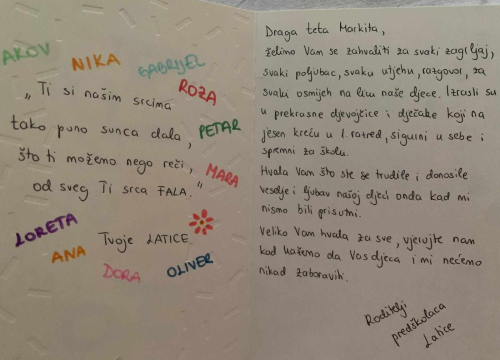 JAKOV
NIKA
GABRIJEL
„Ti si našim srcima
ROZA
tako puno sunca dala,
PETAR
što ti možemo nego reći,
MARA
od sveg Ti srca FALA."
LORETA
Tvoje LATICE
ANA
DORA
OLIVER
Draga teta Markita,
želimo Vam se zahvaliti za svaki zagrljaj,
svaki poljubac, svaku utjehu, razgovor, za
svaki osmijeh na licu naše djece. Izrasli su
u prekrasne djevojčice i dječake koji na
jesen kreću u 1. razred, sigurni u sebe i
spremni za školu.
Hvala Vam što ste se trudile i donosile
veselje i ljubav našoj djeci onda kad mi
nismo bili prisutni.
Veliko Vam hvala za sve, vjerujte nam
kad kažemo da Vas djeca i mi nećemo
nikad zaboraviti.
Roditelji
predškolaca
Latice